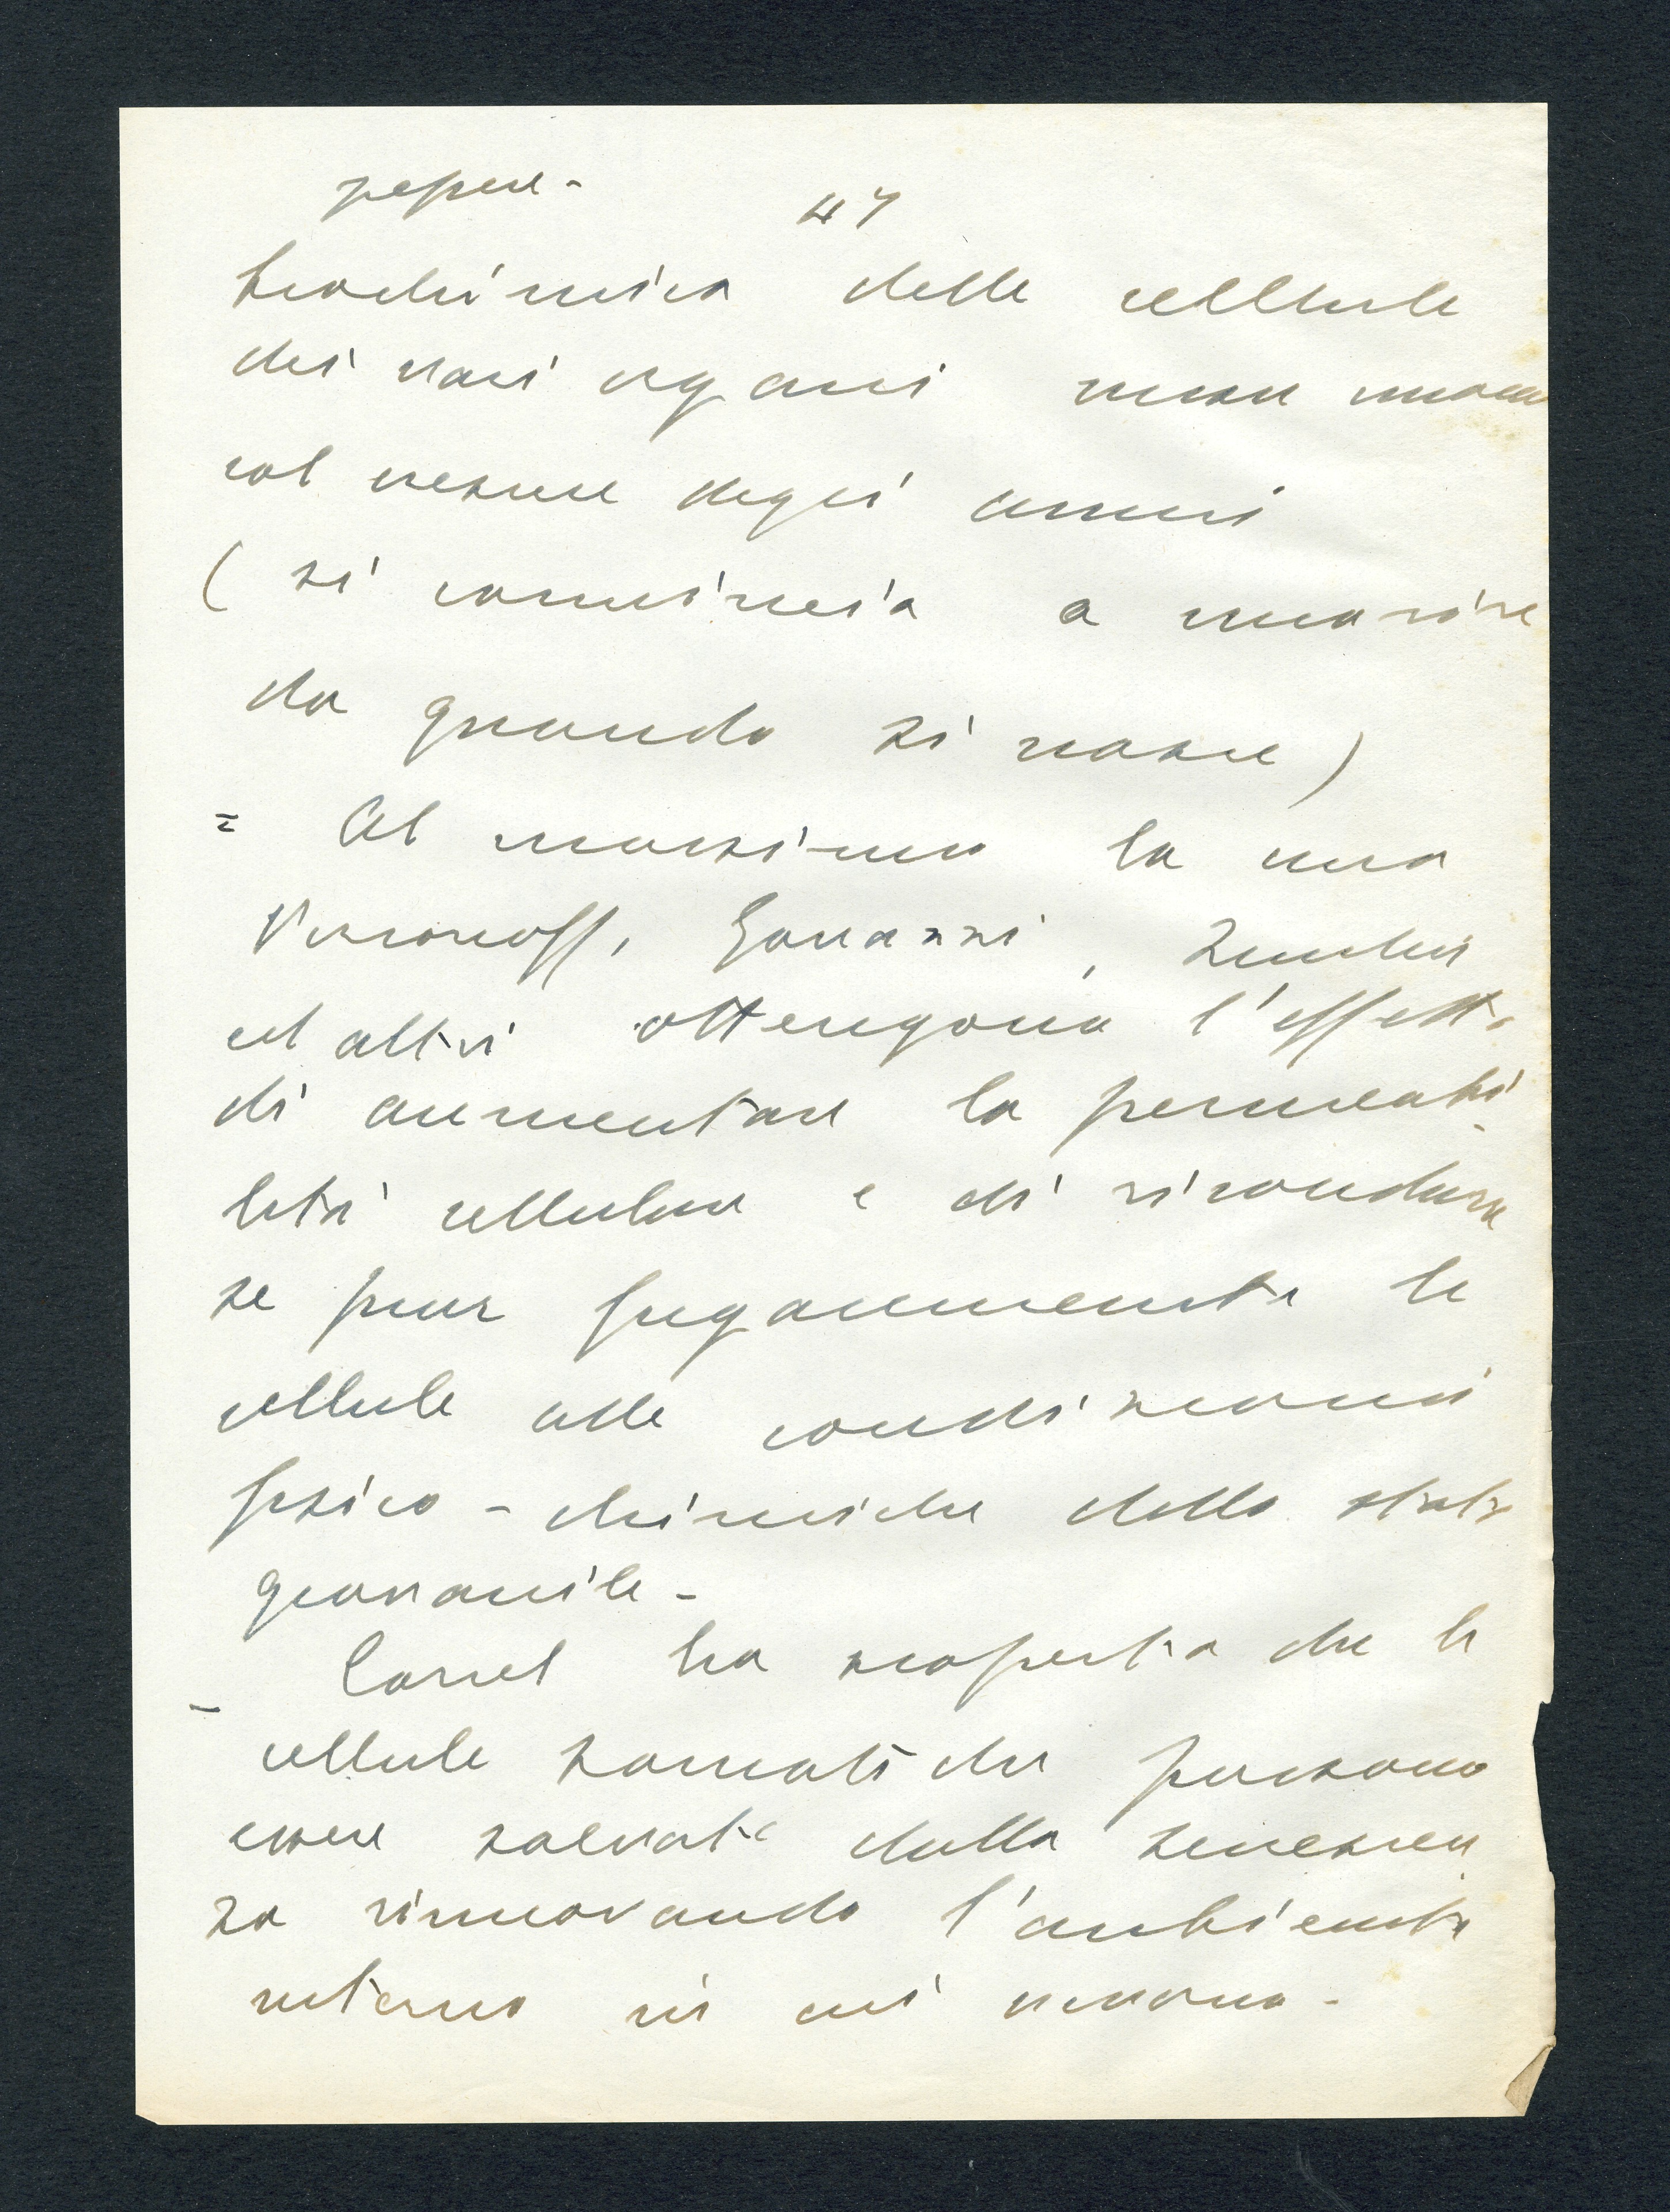 47
biochimica delle cellule
dei vari organi
col crescere degli anni
( si comincia a morire
da quando si nasce )
= Al massimo la cura
Voronoff, Gavazzi,
ed altri ottengono l'effetto
di aumentare la permeabi
lità cellulare e di ricondurre
se pur fugacemente le
cellule alle condizioni
fisico - chimiche dello stato
giovanile -
- Carrel ha scoperto che le
cellule somatiche possono
essere salvate dalla senescen
za rinnovando l'ambiente
interno in cui vivono -